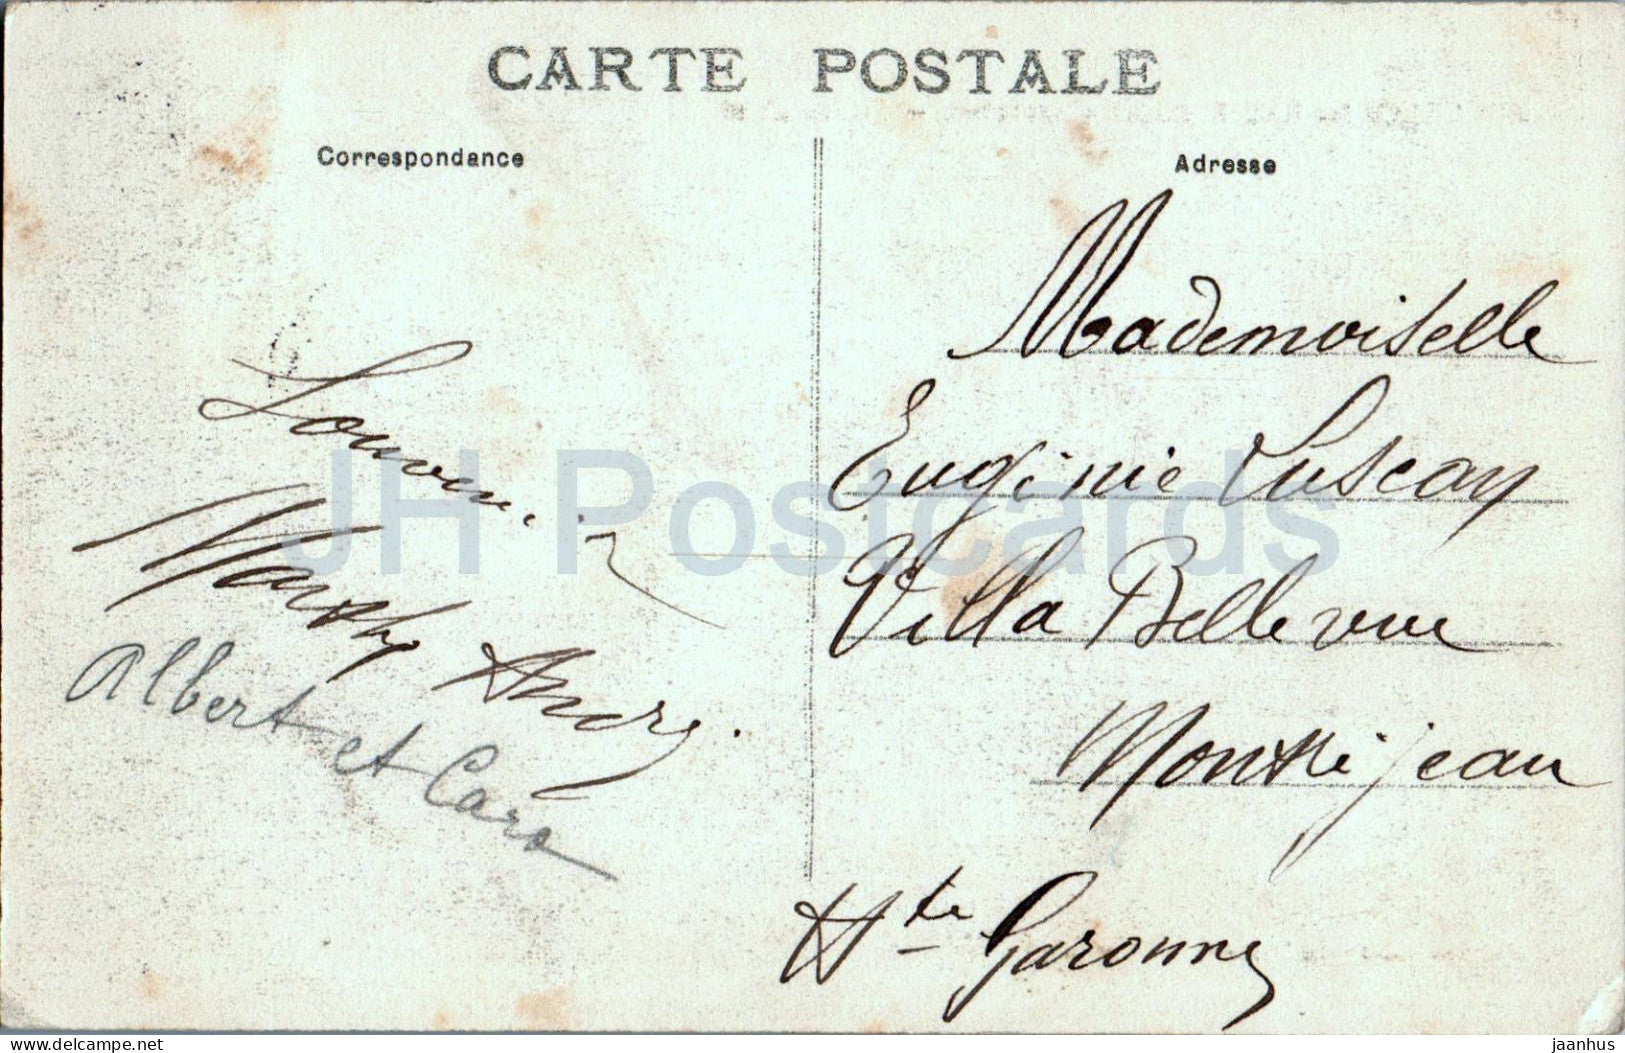 CARTE POSTALE
Correspondance
Souvenir
Marthy André.
Albert et Caro
Adresse
Mademoiselle
Eugénie Luscan
Villa Bellevue
Montréjeau
Hte Garonne
JH Postcards
delcampe.net
jaanhus